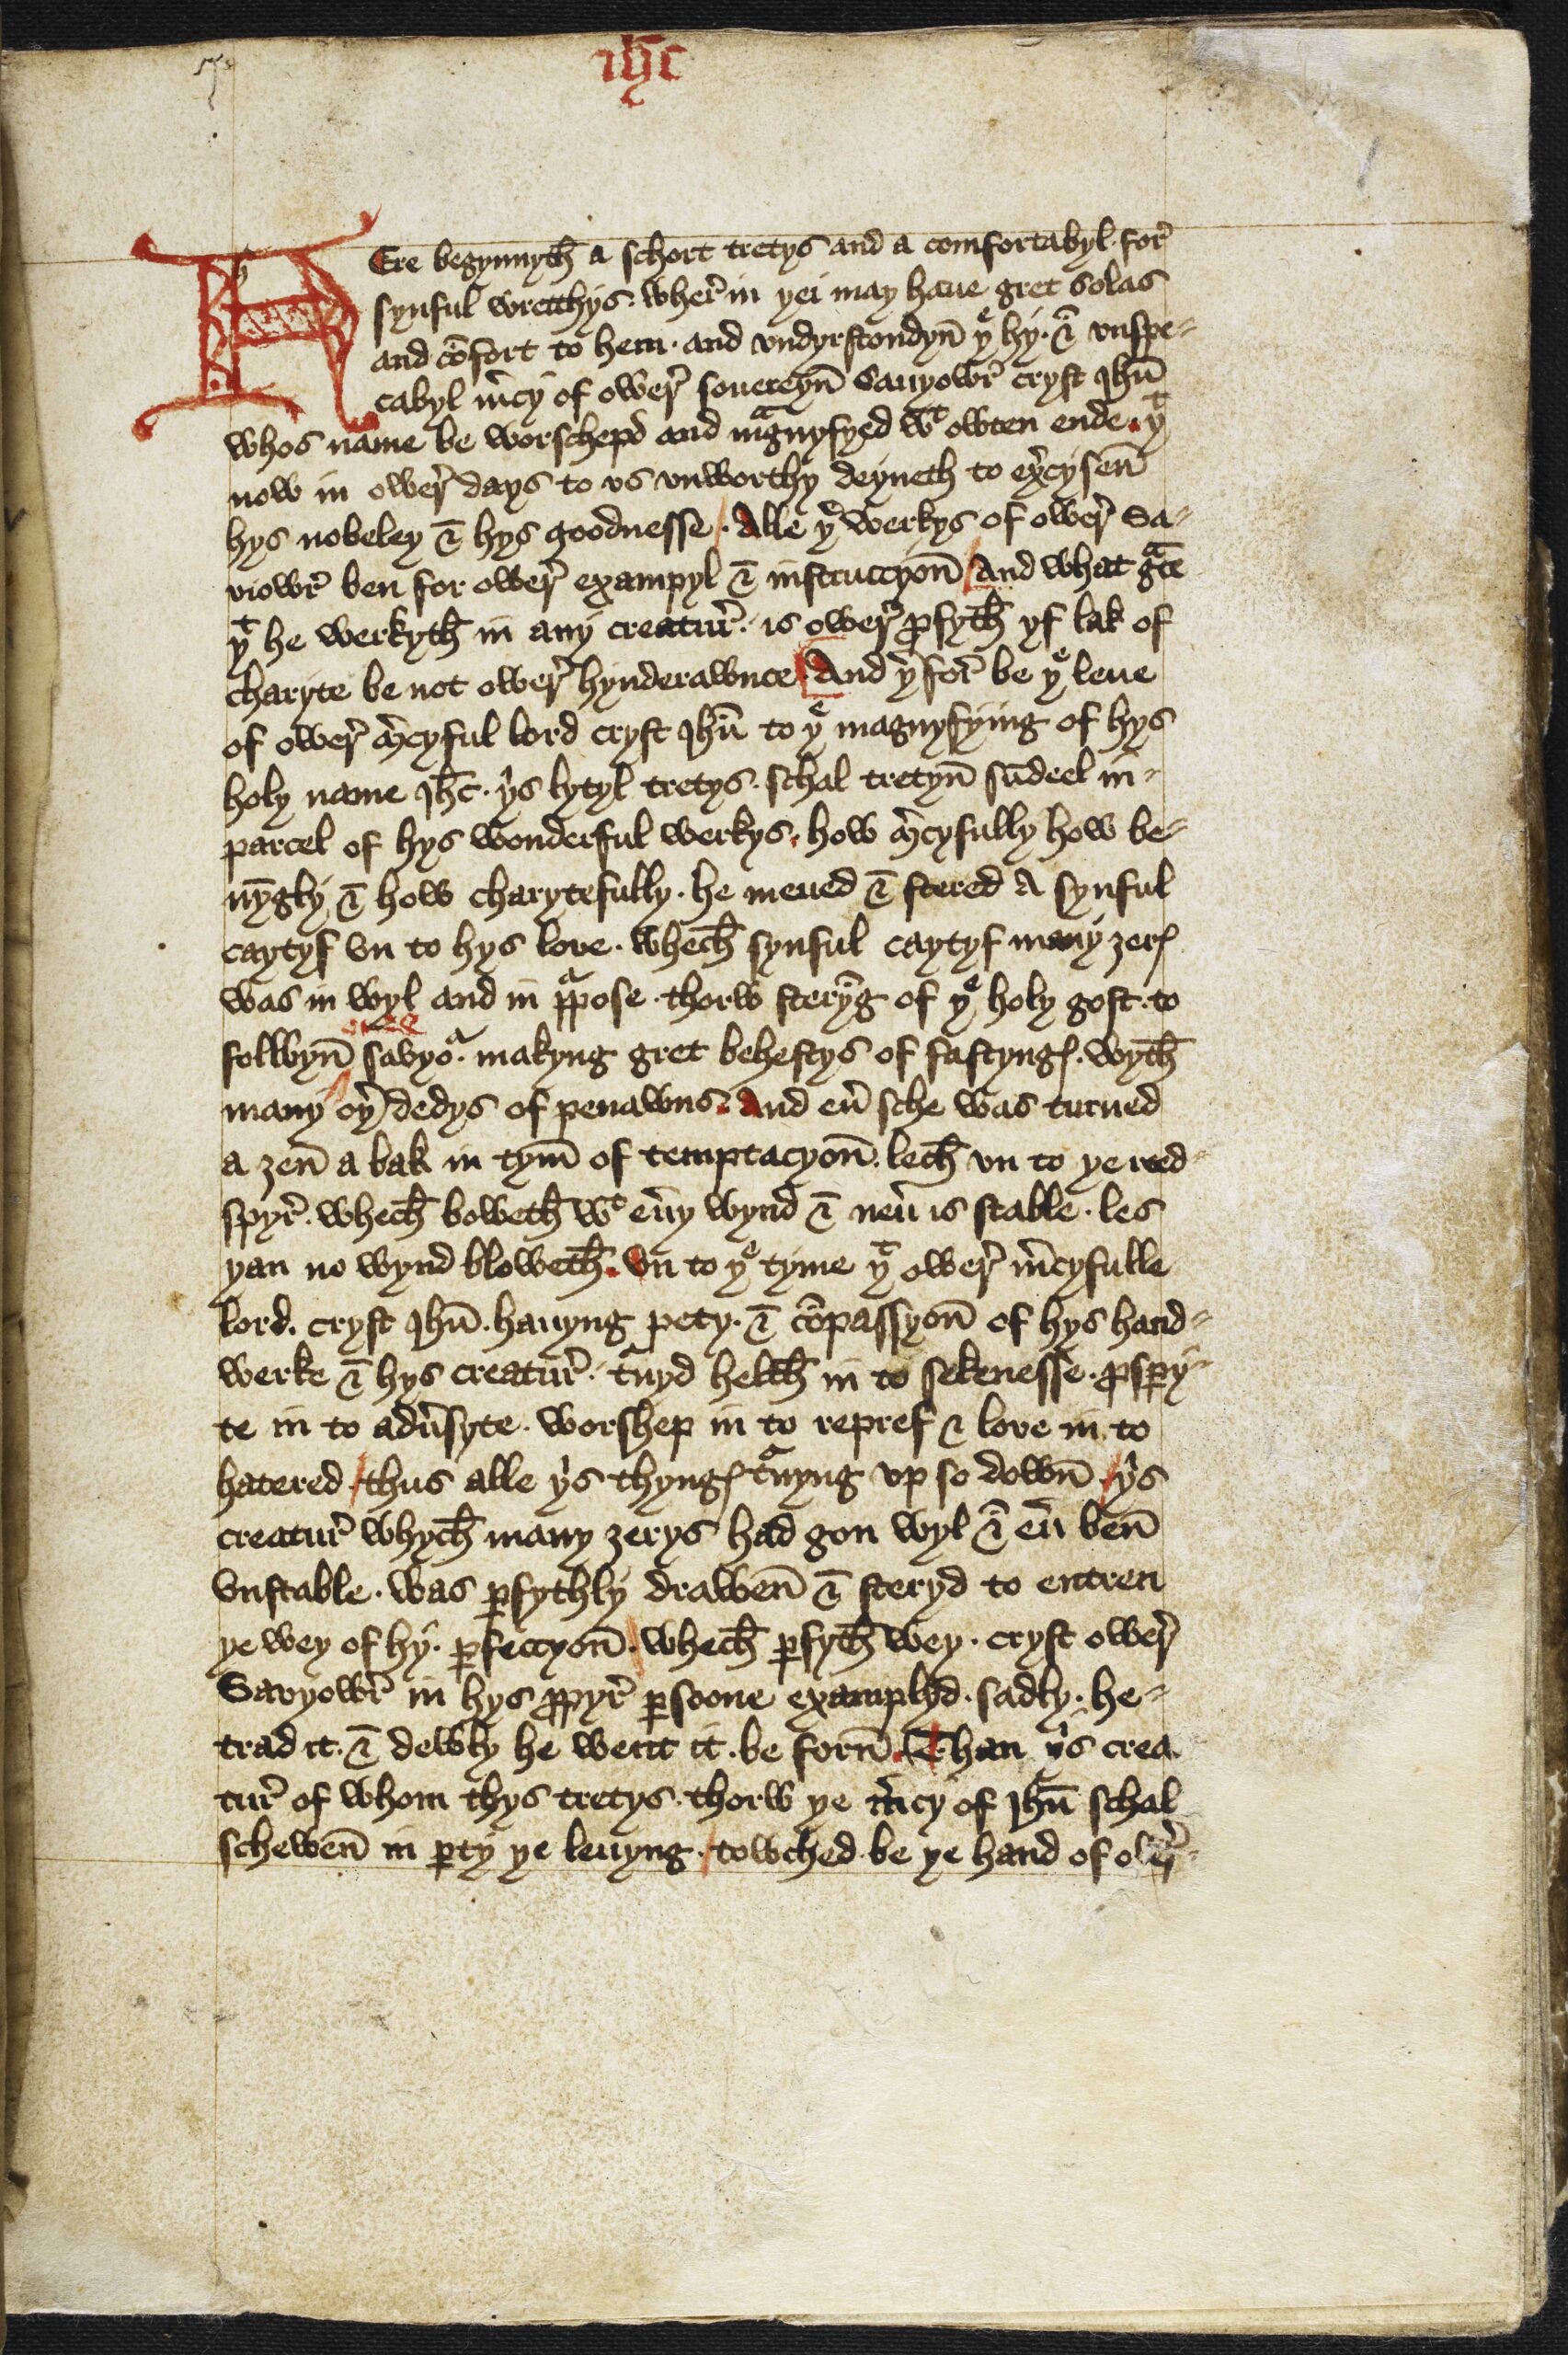 ihc
HEre begynnyth̄ a schort tretys and a comfortabyl for̉
synful wrecchys. wher̉ in yei may haue gret solas
and cōfort to hem. and vndyrstondyn̄ yͤ hy. & vnspe-
cabyl m̉cy of ower̉ souereyn̄ Sauyowr̉ cryst Ihū
whos name be worschepd and mᵃgnyfyed wᵗ owten ende. yᵗ
now in ower̉ days to vs vnworthy deyneth to ex̉cysen̄
hys nobeley & hys goodnesse. Alle yͤ werkys of ower̉ Sa-
viowr̉ ben for ower̉ exampyl & instruccyon̄ And what gᵃce
yᵗ he werkyth̄ in any creatur̉. is ower̉ ꝓfyth̄ yf lak of
charyte be not ower̉ hynderawnce And ỷfor̉ be yͤ leue
of ower̉ m̉cyful lord cryst Ihū to yͤ magnyfying of hys
holy name Ihc̄. y̓s lytyl tretys. schal tretyn̄ sūdeel in-
parcel of hys wonderful werkys. how m̉cyfully how be-
nȳgly & how charytefully. he meued & stered A synful
caytyf vn to hys love. whech̄ synful caytyf many ȝerꝭ
was in wyl and in ꝑpose. thorw sterȳg of yͤ holy gost. to
folwyn̄ oure savyoᵃ. makyng gret behestys of fastyngꝭ. wyth̄
many oỷ dedys of penawns. And eủ sche was turned
a ȝen̄ a bak in tym̄ of temptacyon̄. lech̄ vn to ye reed-
spyr̉. whech̄ boweth̄ wᵗ eủy wynd & neủ is stable. les
yan no wynd bloweth̄. vn to yͤ tyme yᵗ ower̉ m̉cyfulle
lord. cryst Ihū. hauyng pety. & cōpassyon̄ of hys hand-
werke & hys creatur̉. tᵃnyd helth̄ in to sekenesse. ꝓspy-
te in to adủsyte. worshep in to repref & love in to
hatered. thus alle y̓s thyngꝭ tᵃnyng vp so down̄. y̓s
creatur̉ whych̄ many ȝerys had gon wyl & eủ ben̄
vnstable. was ꝑfythly drawen̄ & steryd to entren
ye wey of hy. ꝑfeccyon̄. whech̄ ꝑfyth̄ wey. cryst ower̉
Savyowr̉ in hys ꝓpyr̉ ꝑsoone examplyd. sadly. he-
trad it. & dewly he went it. be forn̄. Than y̓s crea
tur̉ of whom thys tretys. thorw ye m̉cy of Ihū schal
schewen̄ in ꝑty ye leuyng. towched be ye hand of ower̉